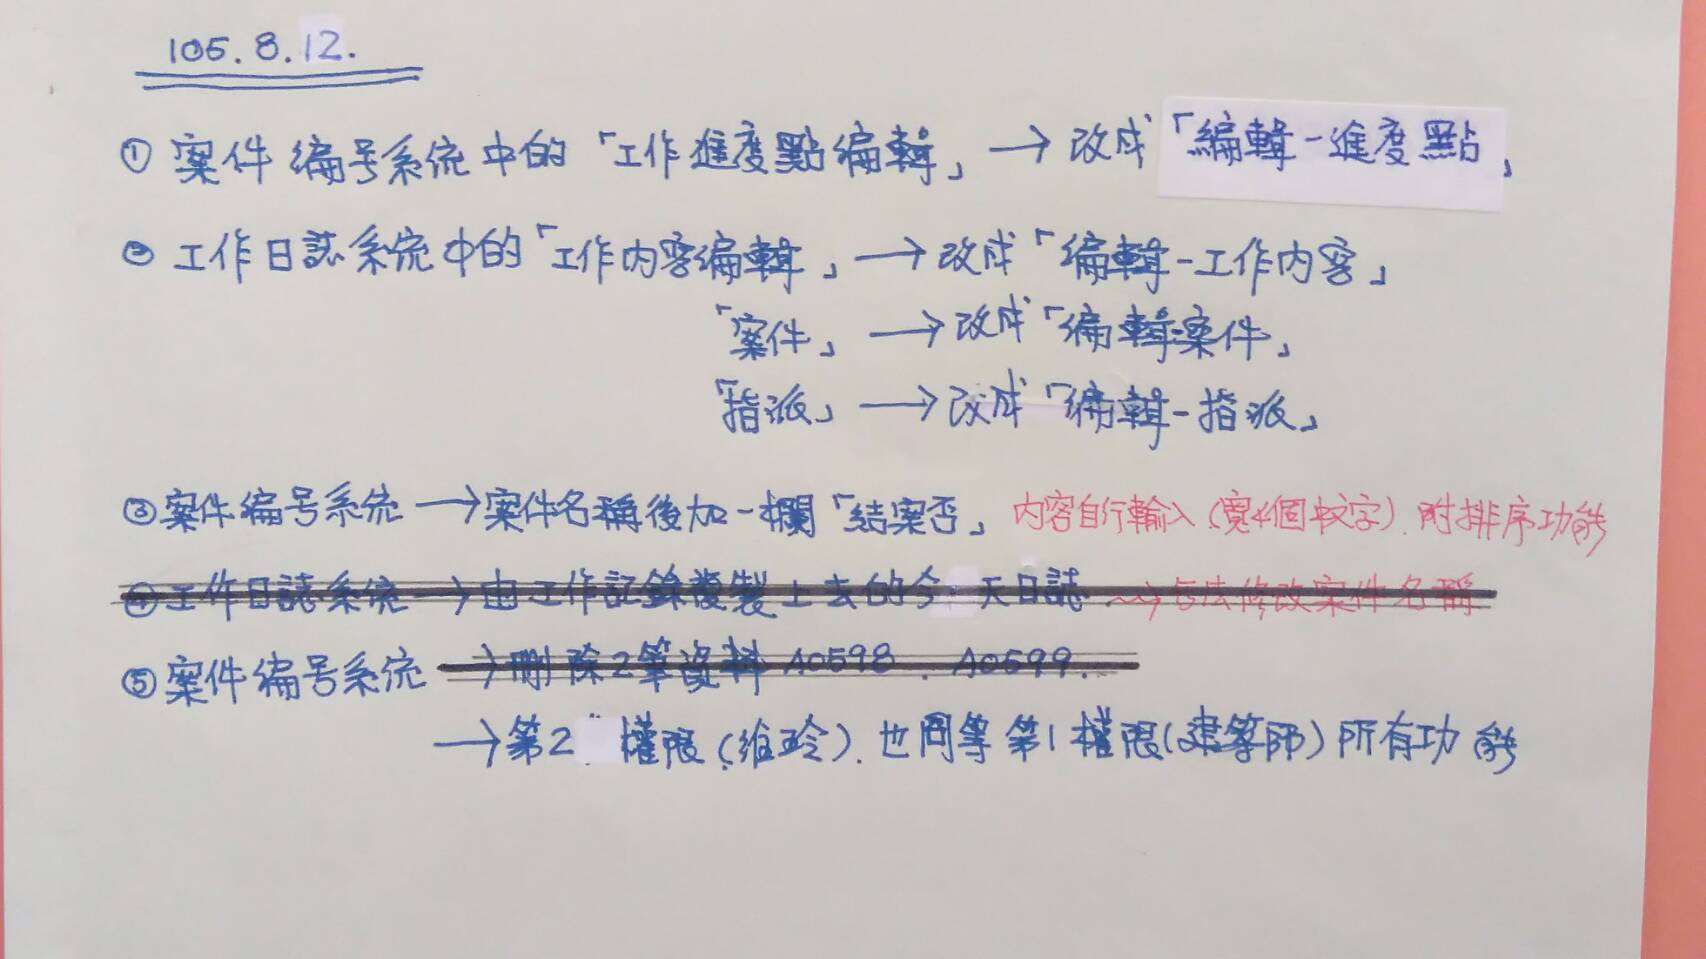 105.8.12.
① 案件編号系統中的「工作進度點編輯」→改成「編輯-進度點」
② 工作日誌系統中的「工作內容編輯」→改成「編輯-工作內容」
「案件」→改成「編輯-案件」
「指派」→改成「編輯-指派」
③ 案件編号系統→案件名稱後加一欄「結案否」 內容自行輸入(寬4個中文字). 附排序功能
④ 工作日誌系統→由工作記錄複製上去的今天日誌 修改案件名稱
⑤ 案件編号系統→刪除2筆資料 A0598. A0599.
→第2權限(維玲). 也同等第1權限(建築師)所有功能